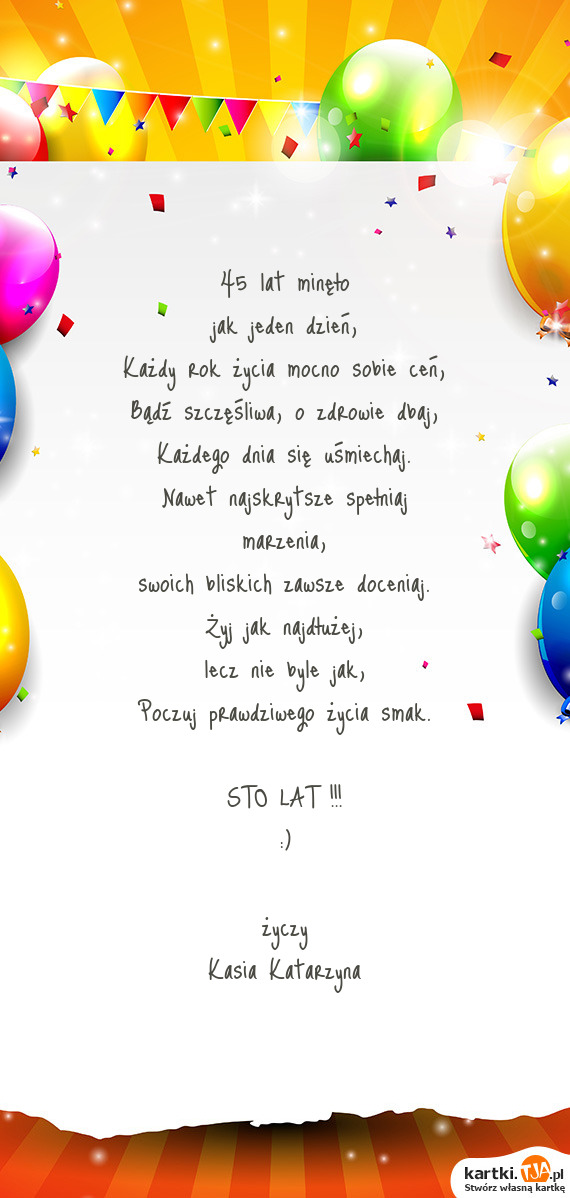 45 lat minęło
jak jeden dzień,
Każdy rok życia mocno sobie ceń,
Bądź szczęśliwa, o zdrowie dbaj,
Każdego dnia się uśmiechaj.
Nawet najskrytsze spełniaj
marzenia,
swoich bliskich zawsze doceniaj.
Żyj jak najdłużej,
lecz nie byle jak,
Poczuj prawdziwego życia smak.
STO LAT !!!
:)
życzy
Kasia Katarzyna
kartki.TJA.pl
Stwórz własną kartkę